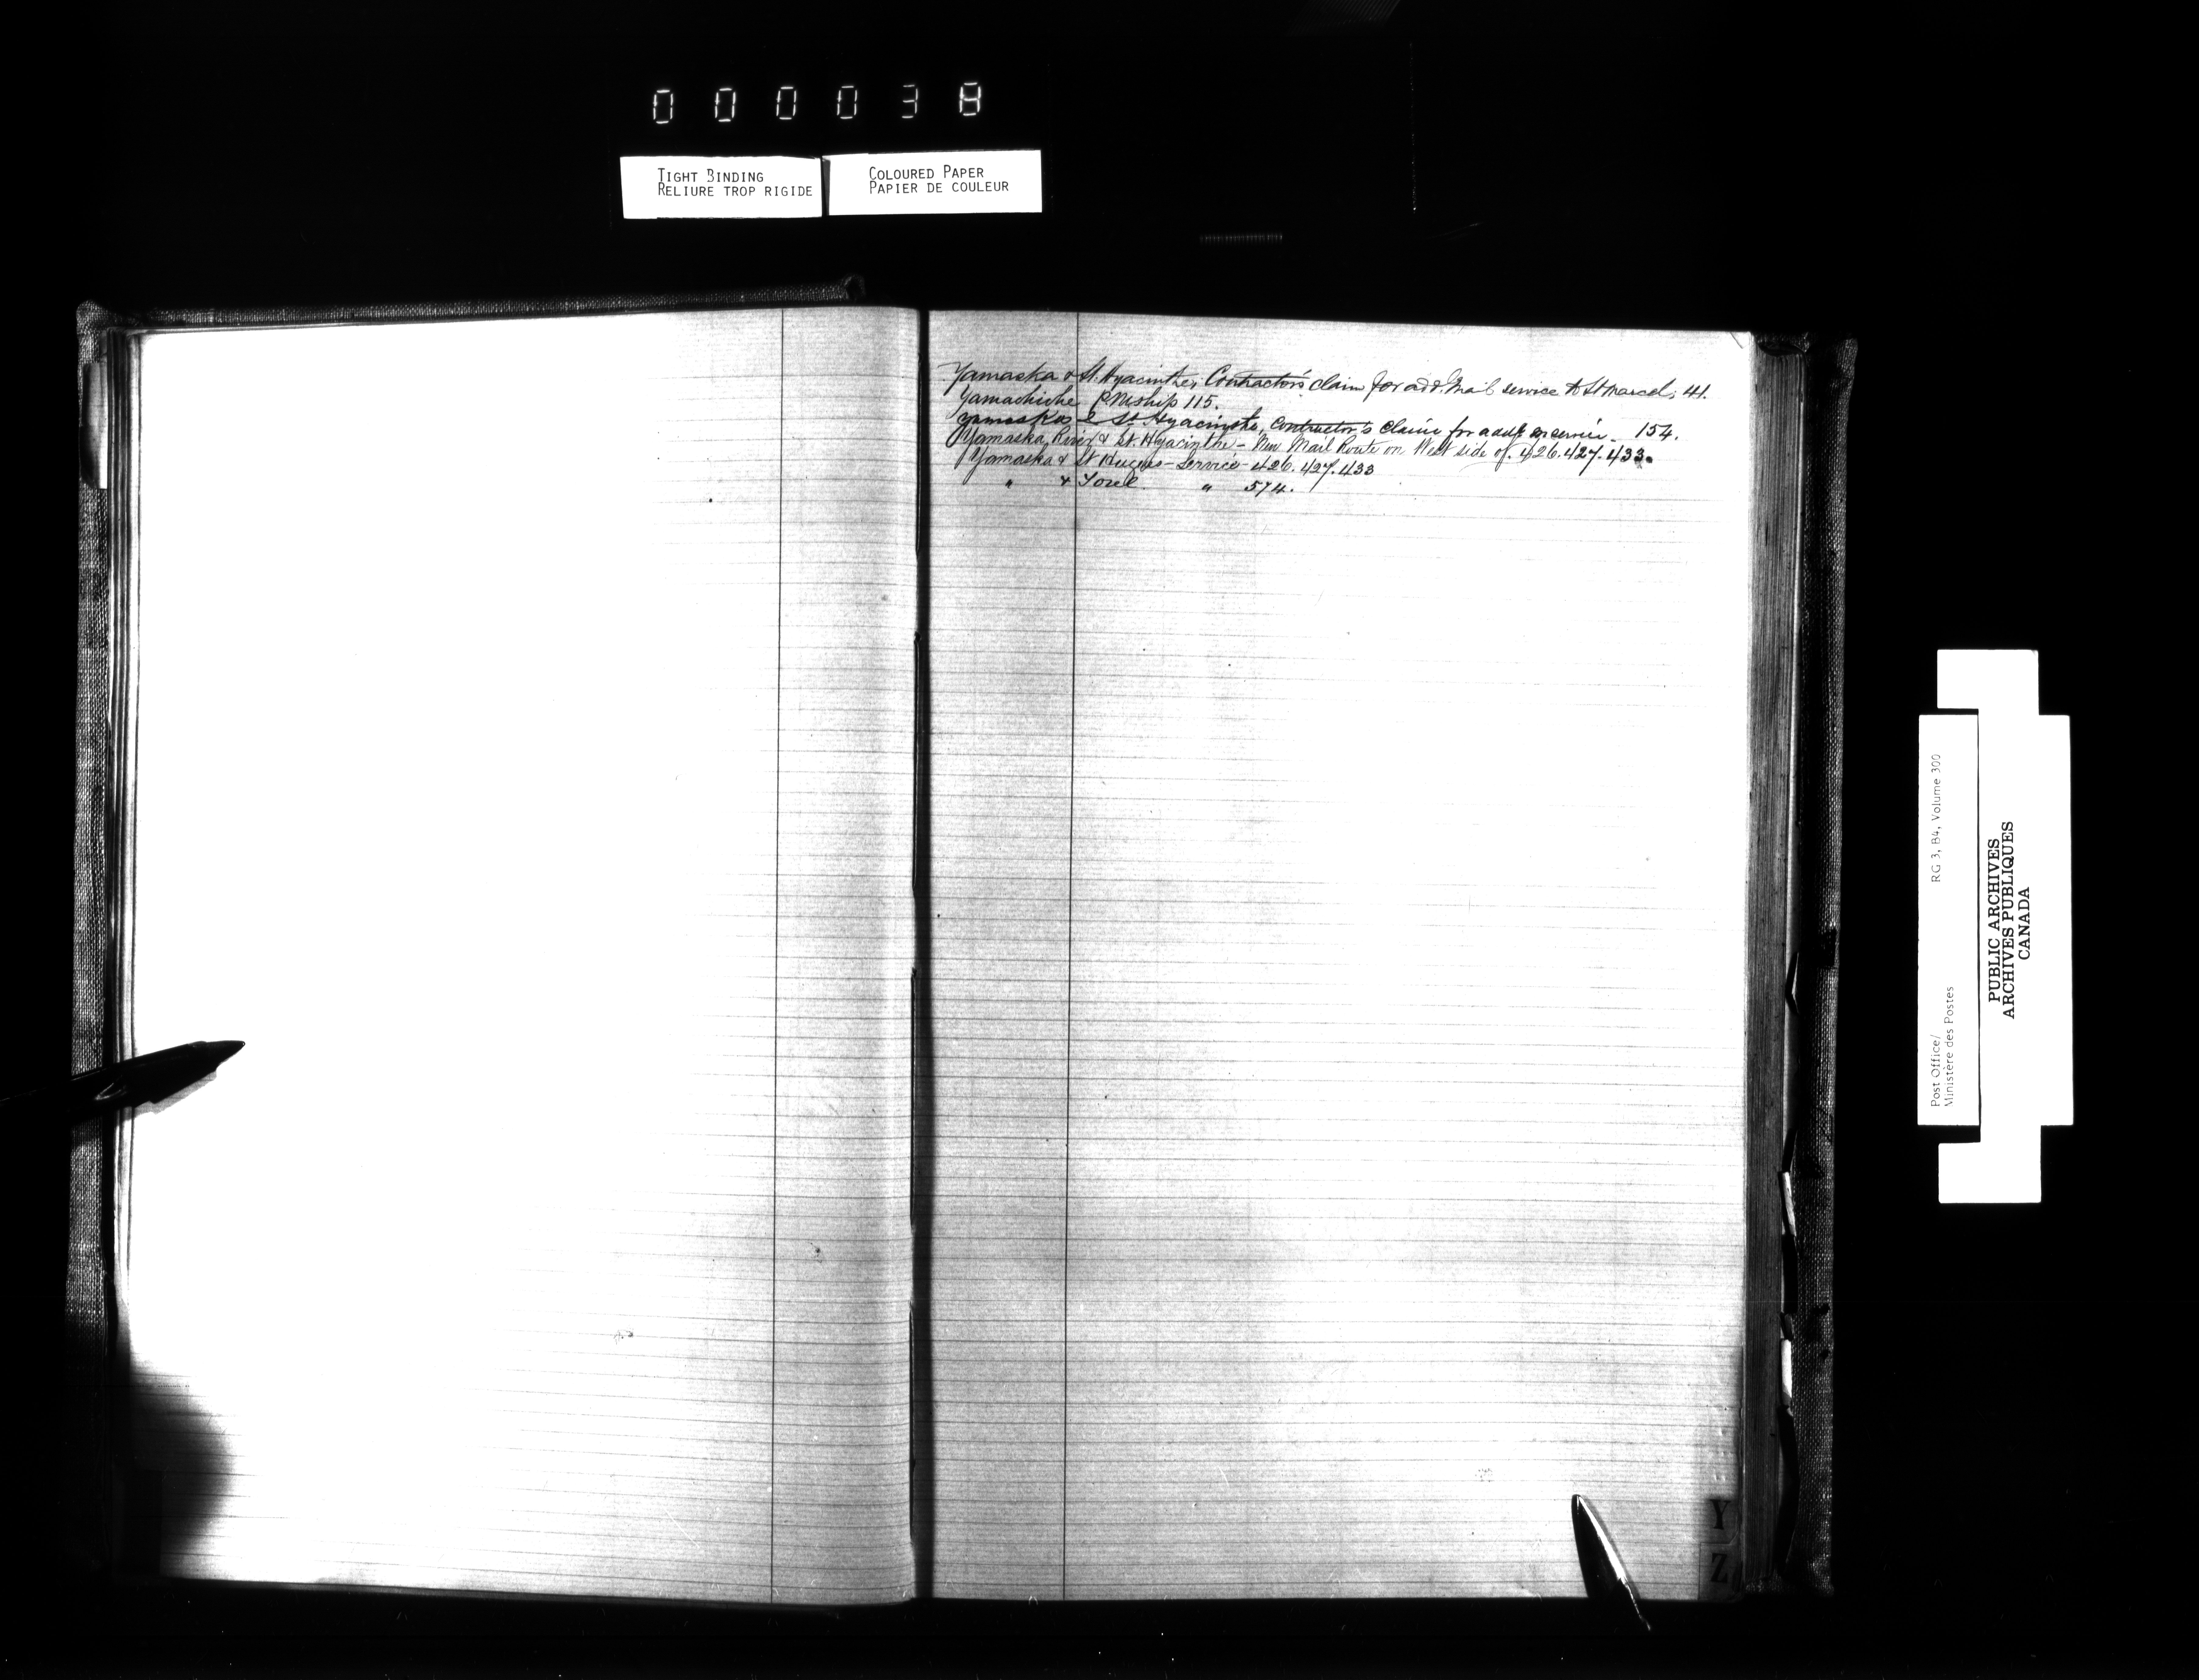 000038
TIGHT BINDING
RELIURE TROP RIGIDE
COLOURED PAPER
PAPIER DE COULEUR
Yamaska & St. Hyacinthe, Contractor's claim for add. Mail service to St Marcel, 41.
Yamachiche PMship 115.
Yamaska & St Hyacinthe, Contractor's claim for service. 154.
Yamaska River & St. Hyacinthe - New Mail Route on West side of. 426.427.433.
Yamaska & St Hugues - Service - 426.427.433
" & Sorel " 574.
Y
Z
Post Office/
Ministère des Postes
RG 3, B4, Volume 300
PUBLIC ARCHIVES
ARCHIVES PUBLIQUES
CANADA